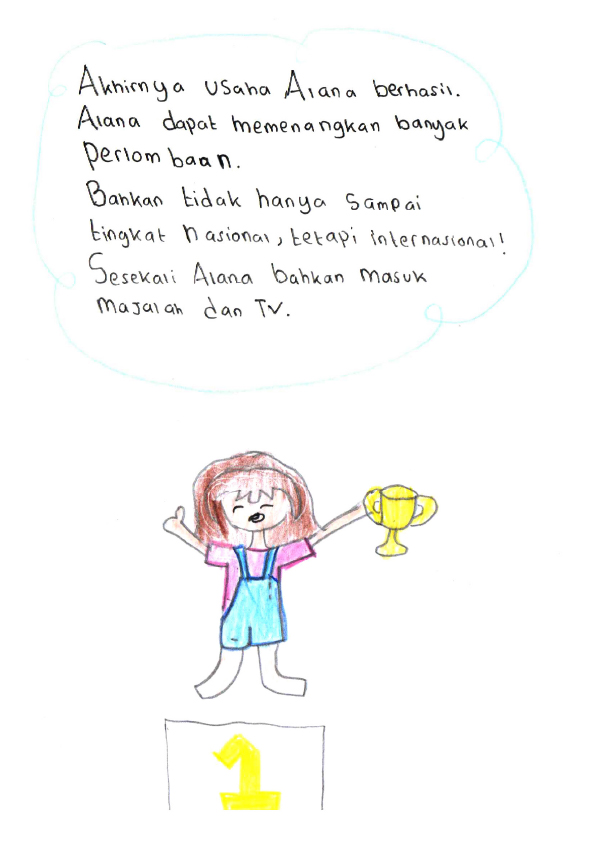 Akhirnya usaha Alana berhasil.
Alana dapat memenangkan banyak
Perlombaan.
Bahkan tidak hanya sampai
tingkat nasional, tetapi internasional!
Sesekali Alana bahkan masuk
majalah dan TV.
1